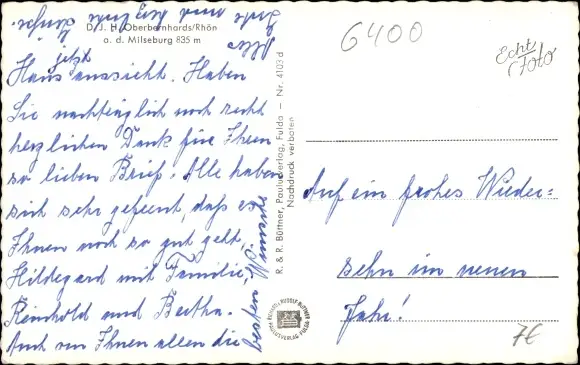 D. J. H. Oberbernhards/Rhön
a. d. Milseburg 835 m
jetzt
Haus aussieht. Haben
Sie nachträglich noch recht
herzlichen Dank für Ihren
so lieben Brief. Alle haben
sich sehr gefreut, daß es
Ihnen noch so gut geht,
Hildegard mit Familie,
Reinhold und Bertha.
Auch von Ihnen allen die
besten Wünsche
Alles
R. & R. Büttner, Paulusverlag, Fulda — Nr. 4103 d
Nachdruck verboten
6400
Echt
Foto
Auf ein frohes Wieder=
sehn im neuen
Jahr!
7€